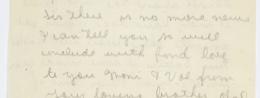 Sis there is no more news
I can tell you so will
include with fond love
to you Mom & Val from
your loving brother